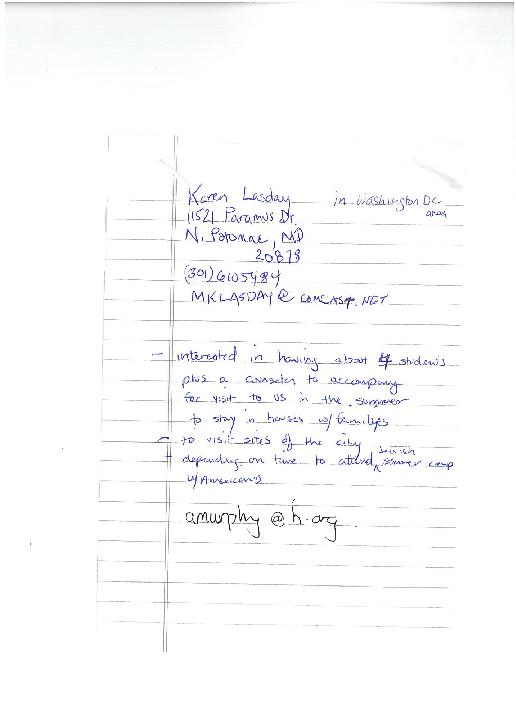 Karen Lasday in Washington DC.
area
11521 Paramus Dr.
N. Potomac, MD
20878
(301) 6105484
MKLASDAY@ COMCAST.NET
- interested in having about 4 students
plus a counselor to accompany
for visit to us in the summer
to stay in houses w/ families
- to visit sites of the city
+ depending on time to attend Jewish summer camp
w/ American's
amurphy @ h.org